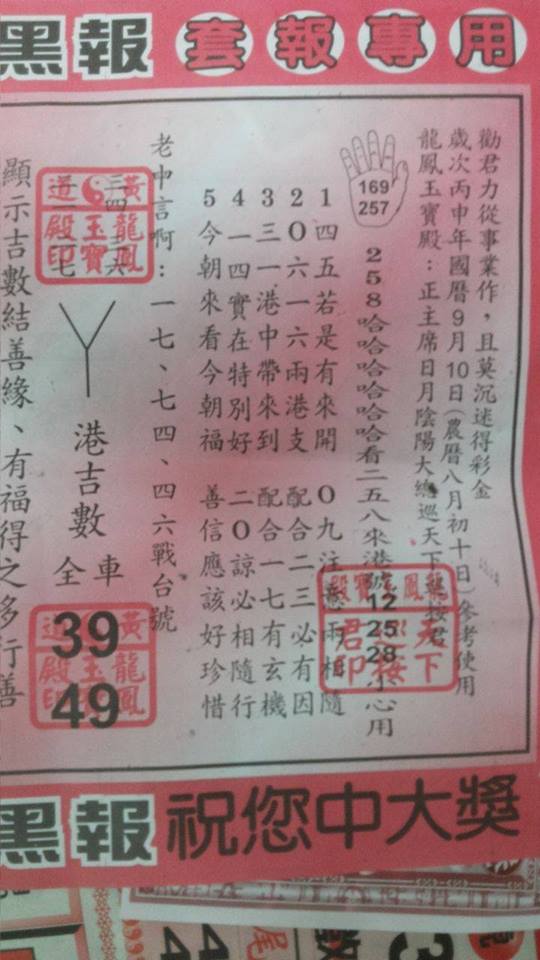 黑報 套報專用
勸君力從事業作，且莫沉迷得彩金
歲次丙申年國曆9月10日(農曆八月初十日)參考使用
龍鳳玉寶殿：正主席日月陰陽大總巡天下
169
257
258哈哈哈哈哈哈看二五八來港號
12
25
28
小心用
1四五若是有來開 0九注意兩相隨
2O六一六兩港支 配合二三必有因
3三一港中帶來到 配合一七有玄機
4一四實在特別好 二O諒必相隨行
5今朝來看今朝福 善信應該好珍惜
老中言啊：一七、七四、四六戰台號
黃龍鳳
玉寶
殿印
港吉數
全車
39
49
黃龍鳳
玉
殿印
顯示吉數結善緣、有福得之多行善
天下
君印
黑報 祝您中大獎
尾